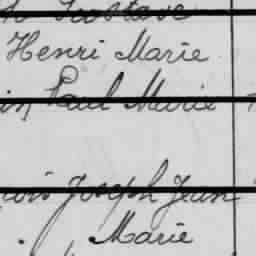 Gustave
Henri Marie
Paul Marie
Joseph Jean
Marie